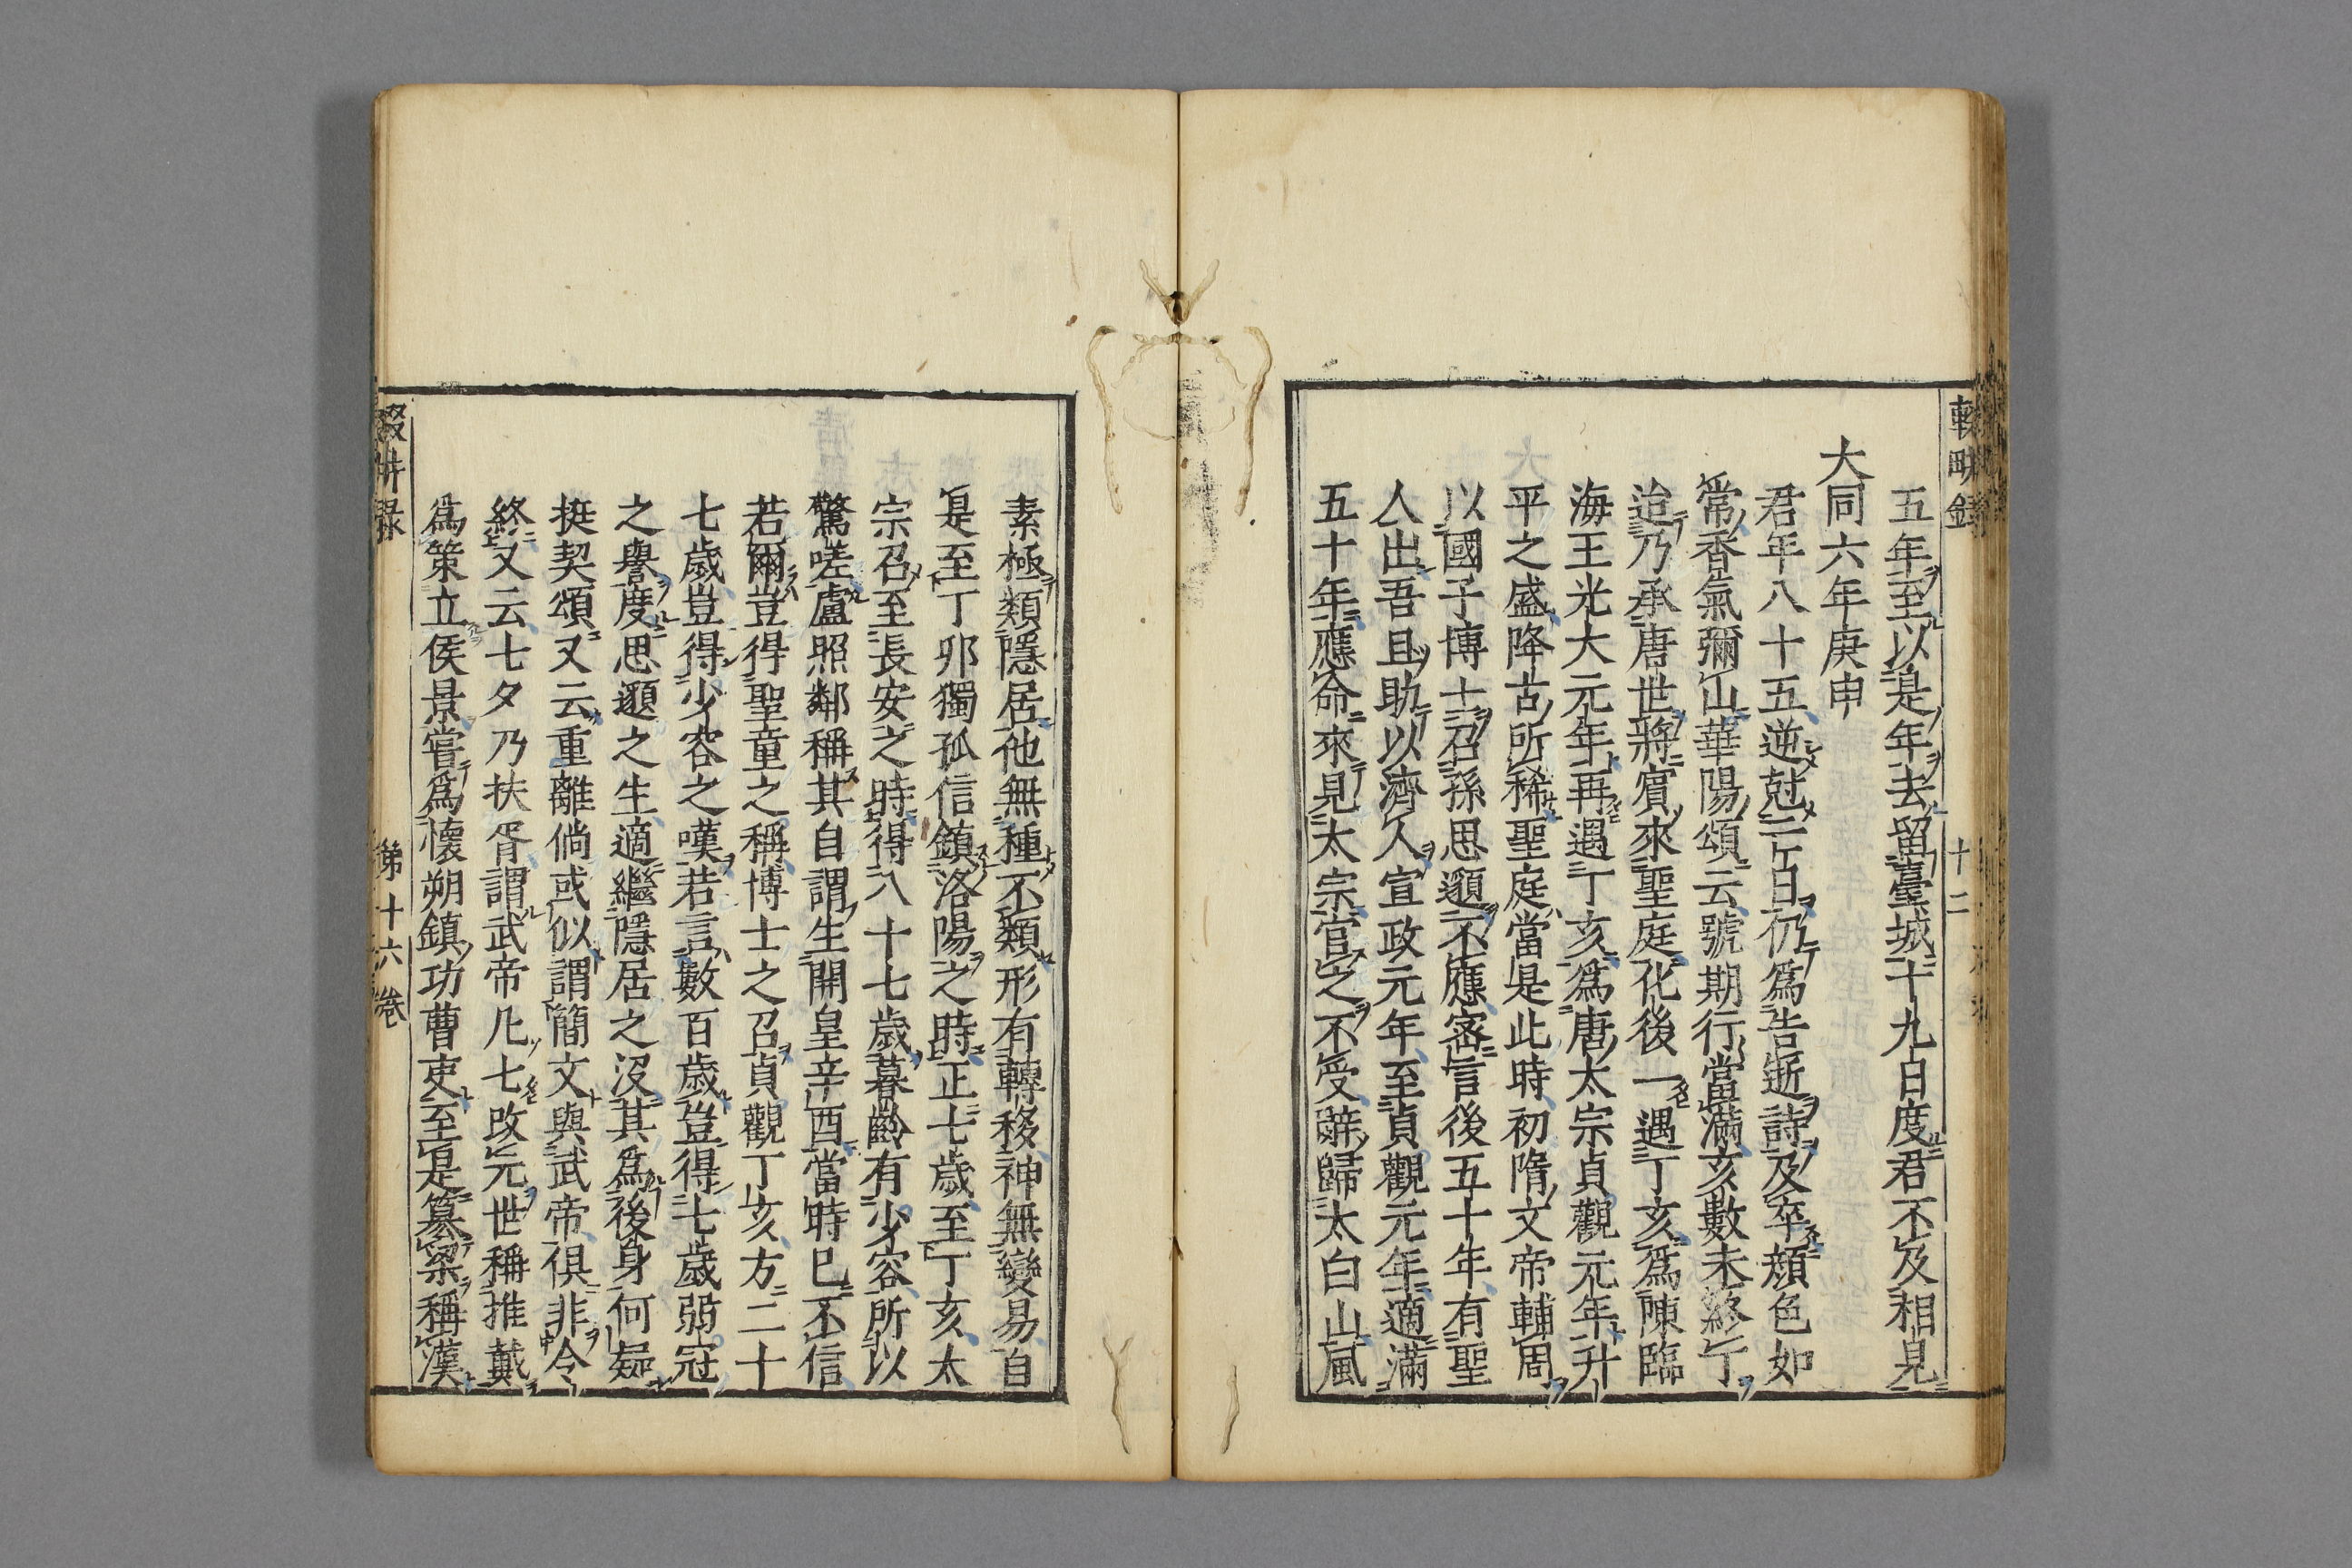 五年至以是年年去留臺城十九白度君不及相見
大同六年庚申
君年八十五逆尅亡日仍爲告逝詩及卒顏色如
常香氣彌山華陽頌云號期行當滿亥數未終丁
迨乃承唐世將賓來聖庭化後一遇丁亥爲陳臨
海王光大元年再遇丁亥爲唐太宗貞觀元年升
平之盛降古所稀聖庭當是此時初隋文帝輔周
以國子博士召孫思邈不應密言後五十年有聖
人出吾且助以濟人宣政元年至貞觀元年適滿
五十年應命來見太宗官之不受辭歸太白山嵐
素極類隱居他無種不類形有轉移神無變易自
是至丁卯獨孤信鎮洛陽之時正七歲至丁亥太
宗召至長安之時得八十七歲暮齡有少容所以
驚嗟盧照鄰稱其自謂生開皇辛酉當時已不信
若爾豈得聖童之稱博士之召貞觀丁亥方二十
七歲豈得少容之嘆若言數百歲豈得七歲弱冠
之譽度思邈之生適繼隱居之沒其爲後身何疑
挺契頌又云重離倘或似謂簡文與武帝俱非令
終又云七夕乃扶胥謂武帝凡七改元世稱推戴
爲策立侯景嘗爲懷朔鎮功曹吏至是簒梁稱漢
輟耕錄
第十六卷
十二